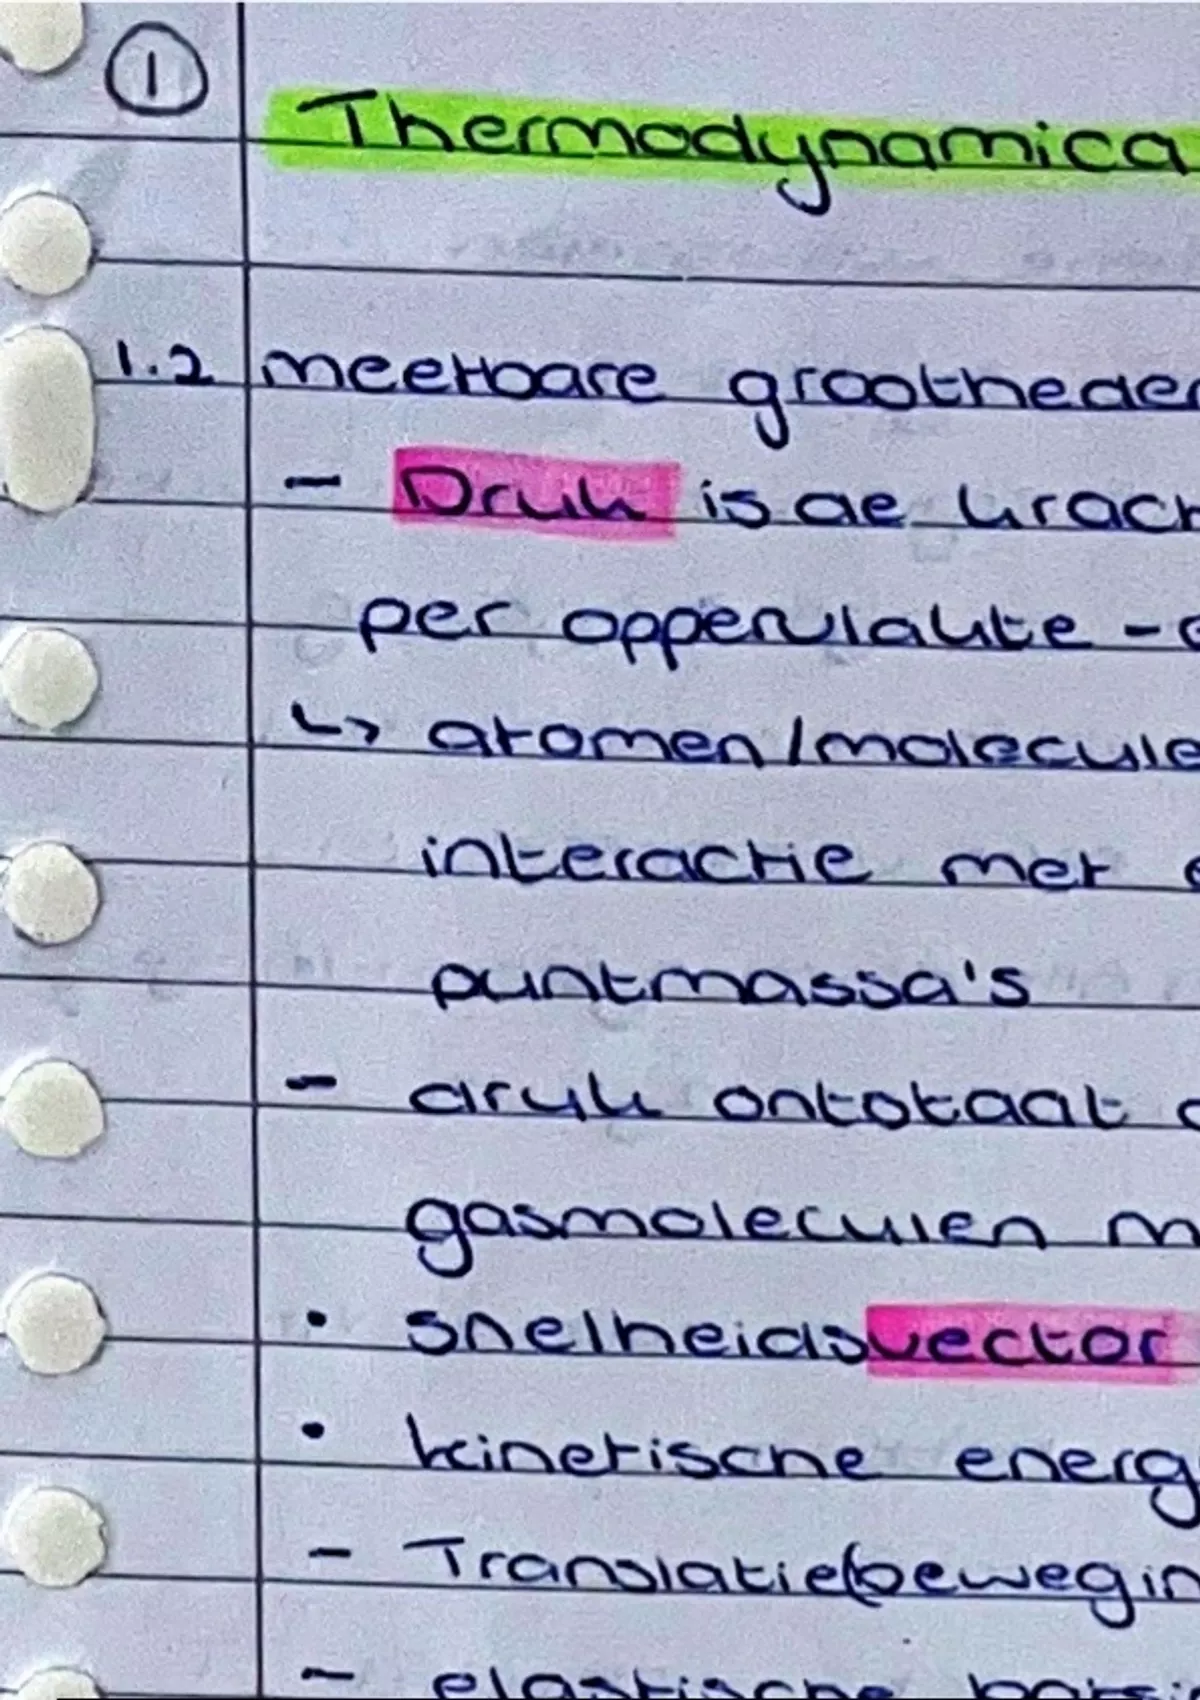 1 Thermodynamica
1.2 meetbare grootheden
- Druk is de krach
per oppervlakte -
↳ atomen/molecule
interactie met
puntmassa's
- druk ontotaat
gasmoleculen m
• snelheidsvector
• kinetische energ
- Translatie(bewegin
- elastische bots